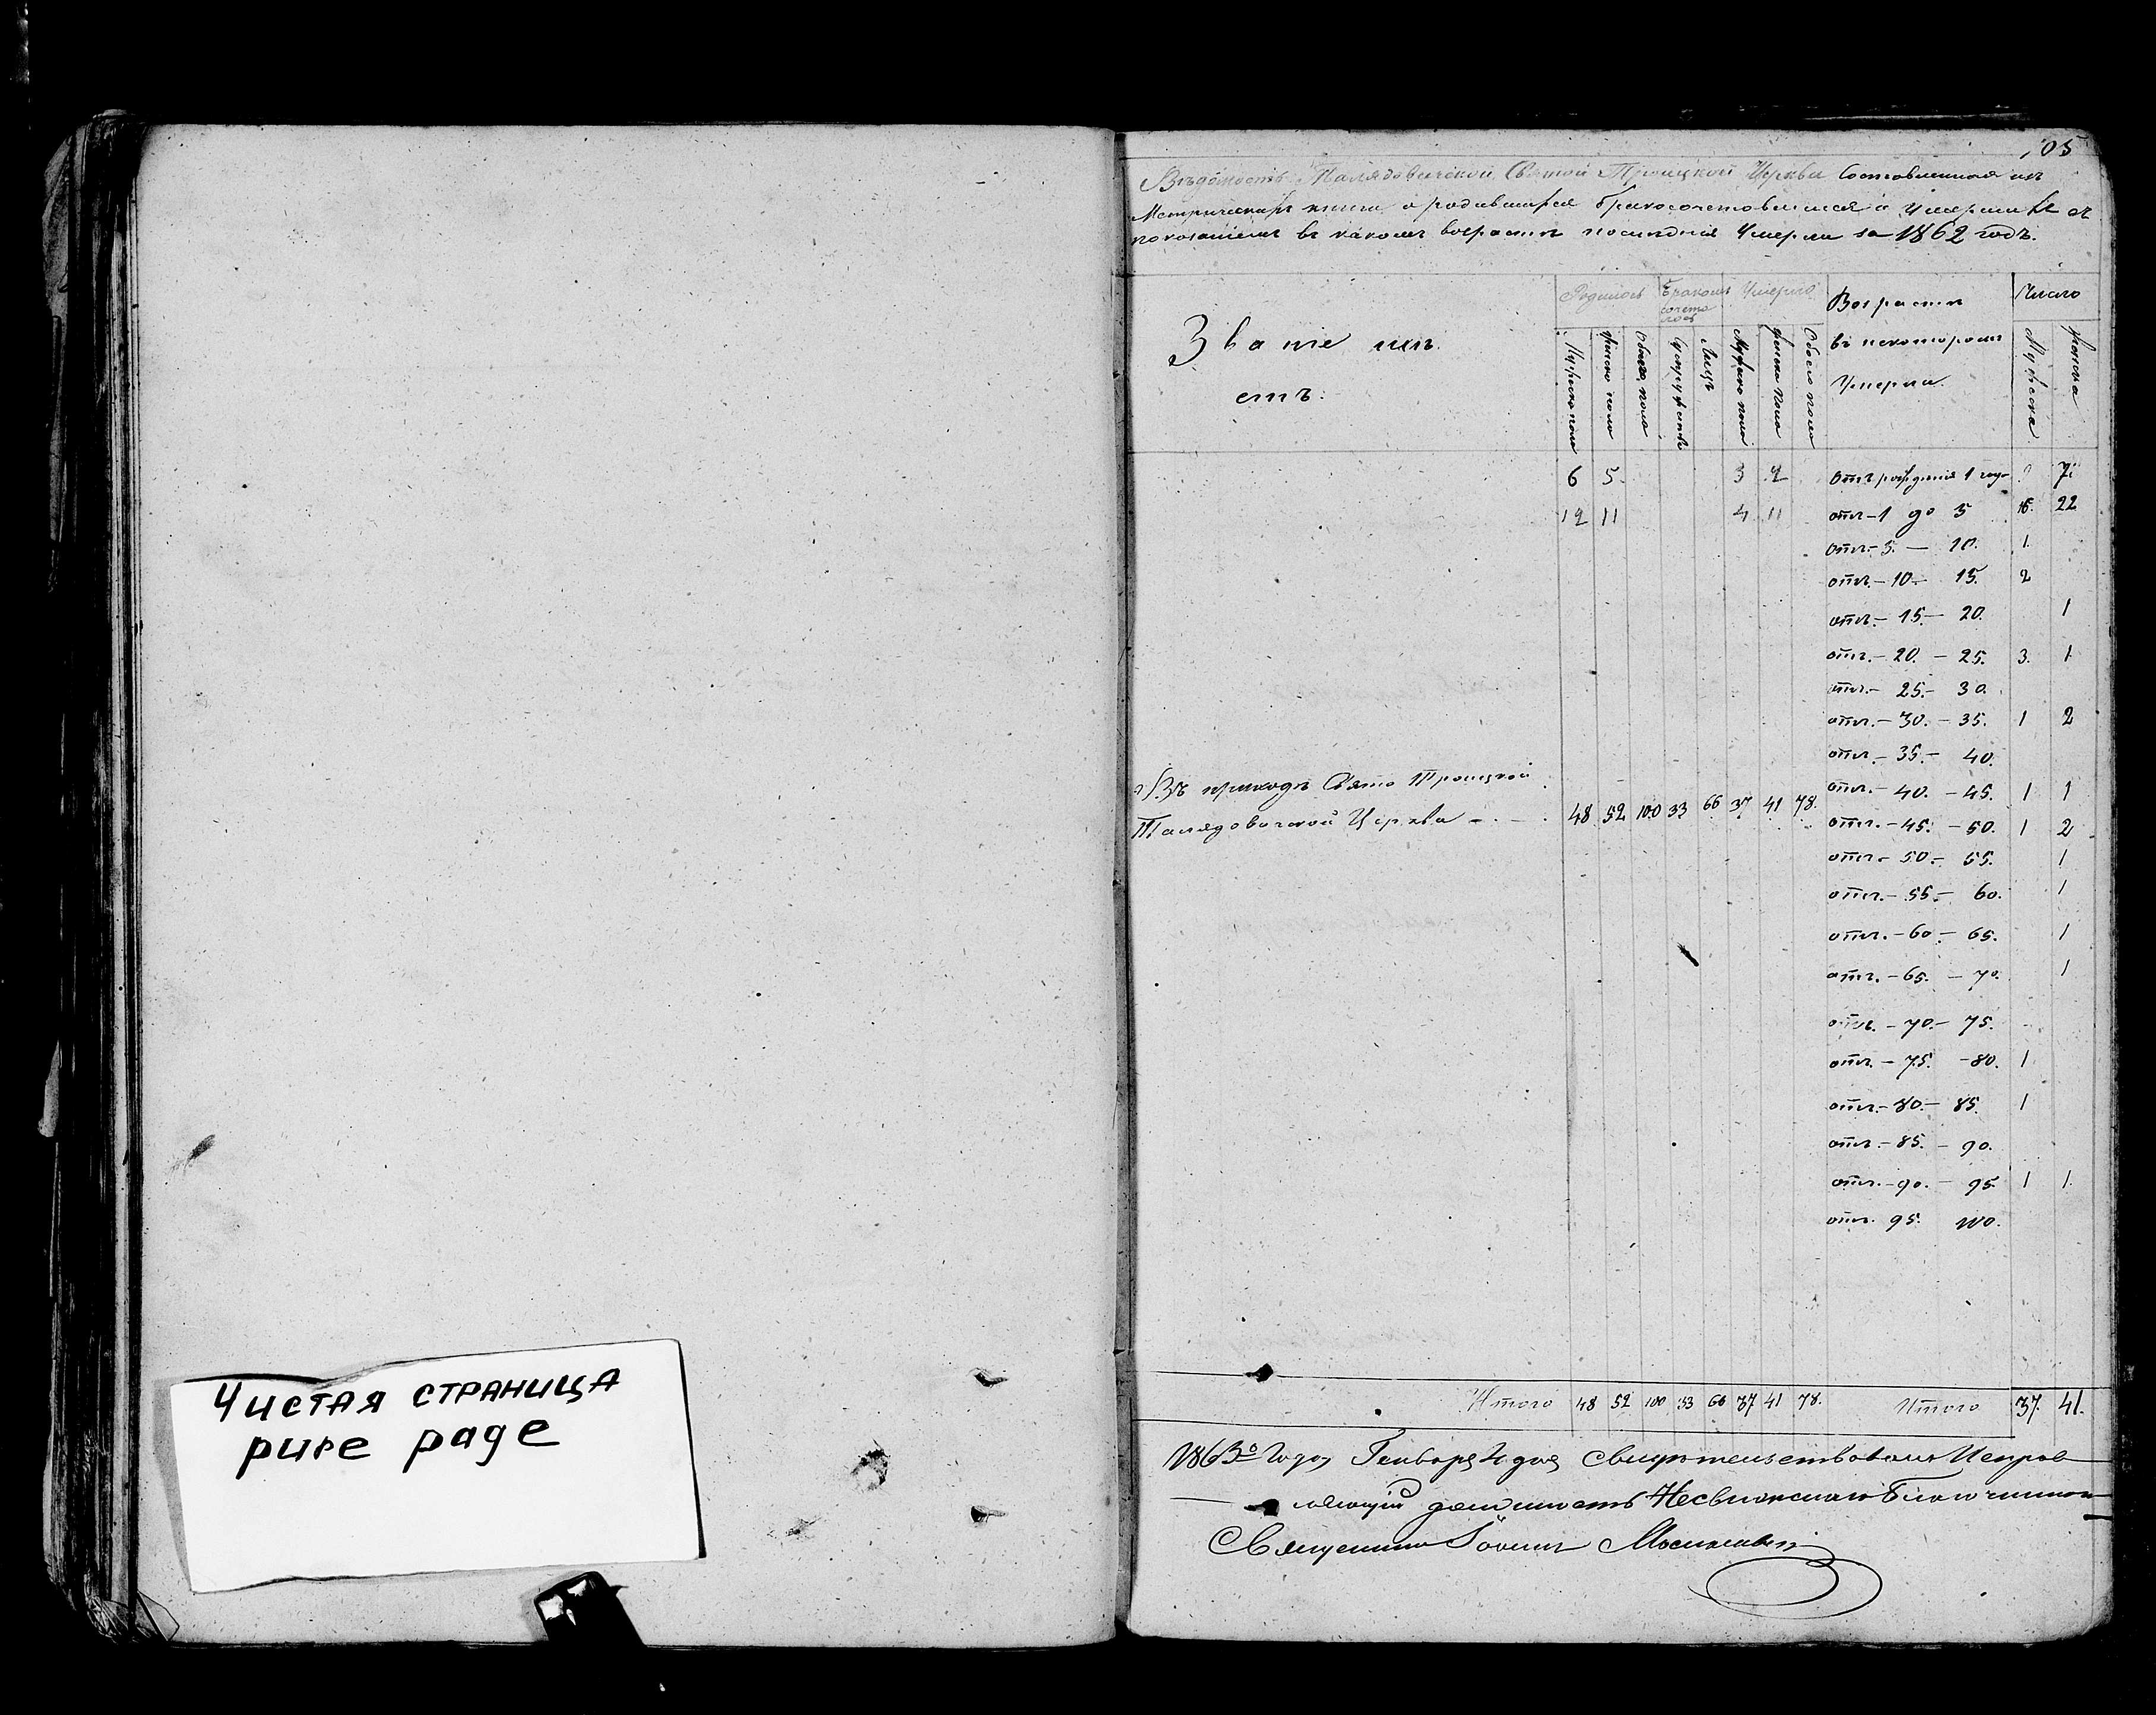 Чистая страница
pure page
105
Вѣдомость Талядовичской Святой Троицкой Церкви Составленная изъ
Метрическихъ книгъ о родившихся бракосочетовшихся и Умершихъ съ
показаніемъ въ какомъ возрастѣ послѣдніе Умерли за 1862 годъ.
Званіе мѣстъ.
Родилось
Бракомъ сочеталось
Умерло
Возрастъ въ некоторомъ Умерли
Число
Мужеско пола
Женско пола
Обоего пола
Супружествъ
Лицъ
Мужеско пола
Женска пола
Обоего пола
Мужеска
Женска
6 5 3 2 Отъ рожденія 1 года 7.
12 11 4 11 отъ-1 до 5 15. 22
отъ-5. — 10. 1.
отъ.-10- 15. 2
отъ.- 15.- 20. 1
отъ.-20. - 25. 3. 1
отъ.- 25.- 30.
отъ.-30. - 35. 1 2
отъ.-35.- 40.
отъ.- 40. - 45. 1 1
Въ приходѣ Свято Троицкой
Талядовичской Церкви - . - 48 52 100 33 66 37 41 78.
отъ.-45. - 50. 1 2
отъ.- 50.- 55. 1
отъ.- 55.- 60. 1
отъ.-60.- 65. 1
отъ.-65. - 70. 1
отъ. - 70.- 75.
отъ. - 75. -80. 1
отъ.-80.- 85. 1
отъ.-85. - 90.
отъ.-90. - 95. 1 1
отъ. 95. 100.
Итого 48 52 100 33 66 37 41 78. Итого 37. 41.
1863го Года Генваря 4 дня Свидѣтельствовалъ Исправ
ляющій должность Несвижскаго Благочиннаго
Священникъ Іоаннъ